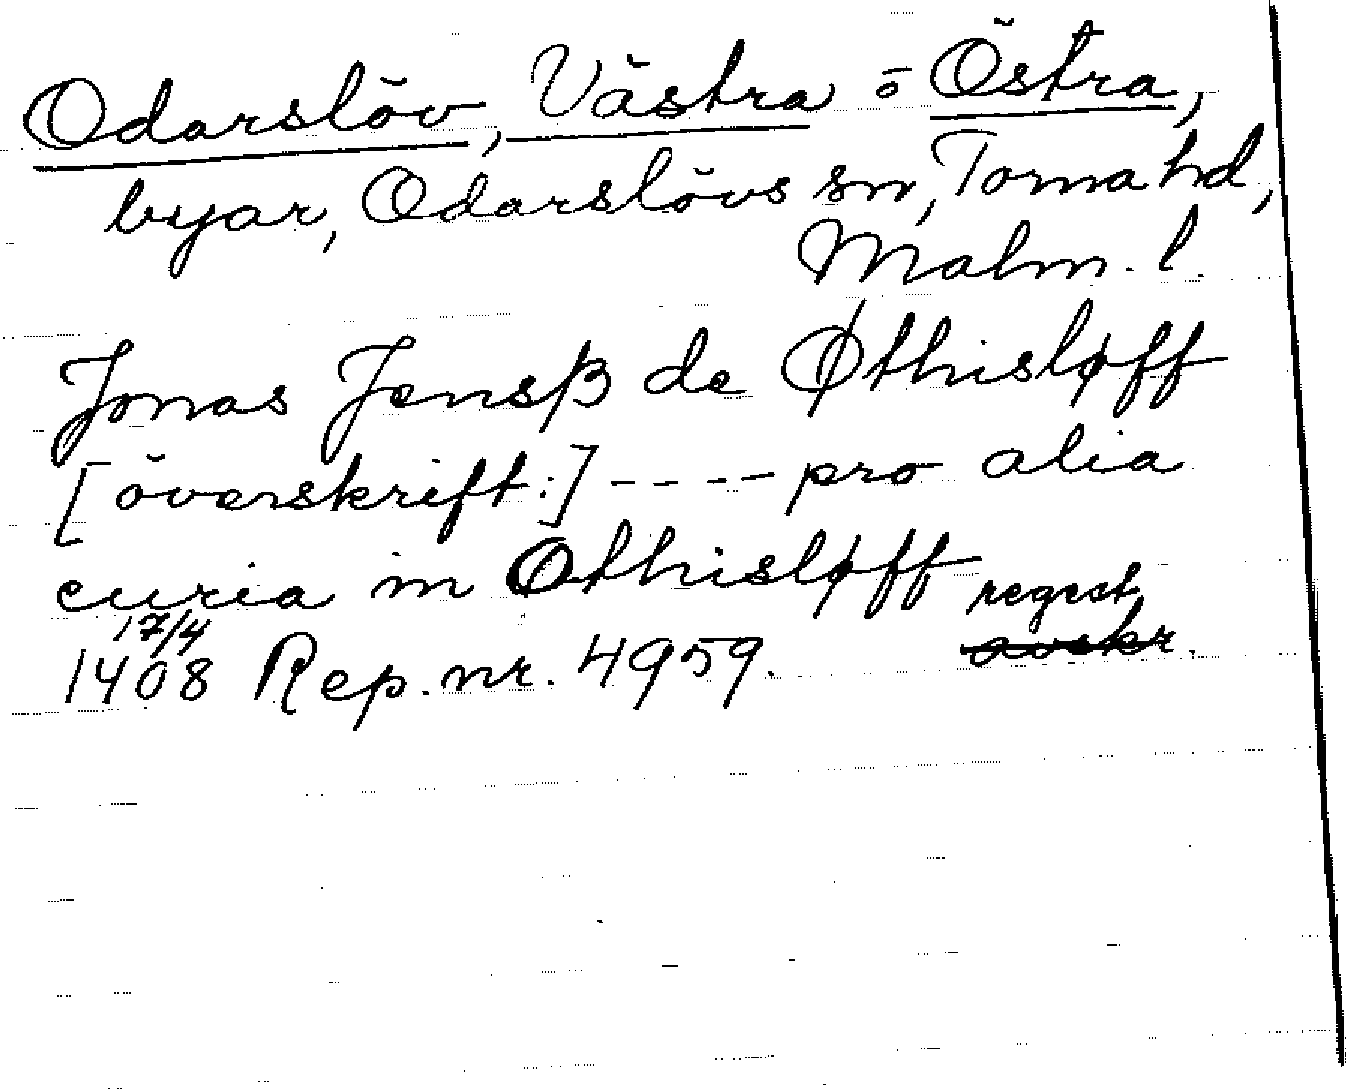 Odarslöv, Västra o Östra,
byar, Odarslövs sn, Torna hd,
Malm. l.
Jonas Jensß de Øthisløff
[överskrift:] ---- pro alia
curia in Othisløff regest
17/4 avskr.
1408 Rep. nr. 4959.